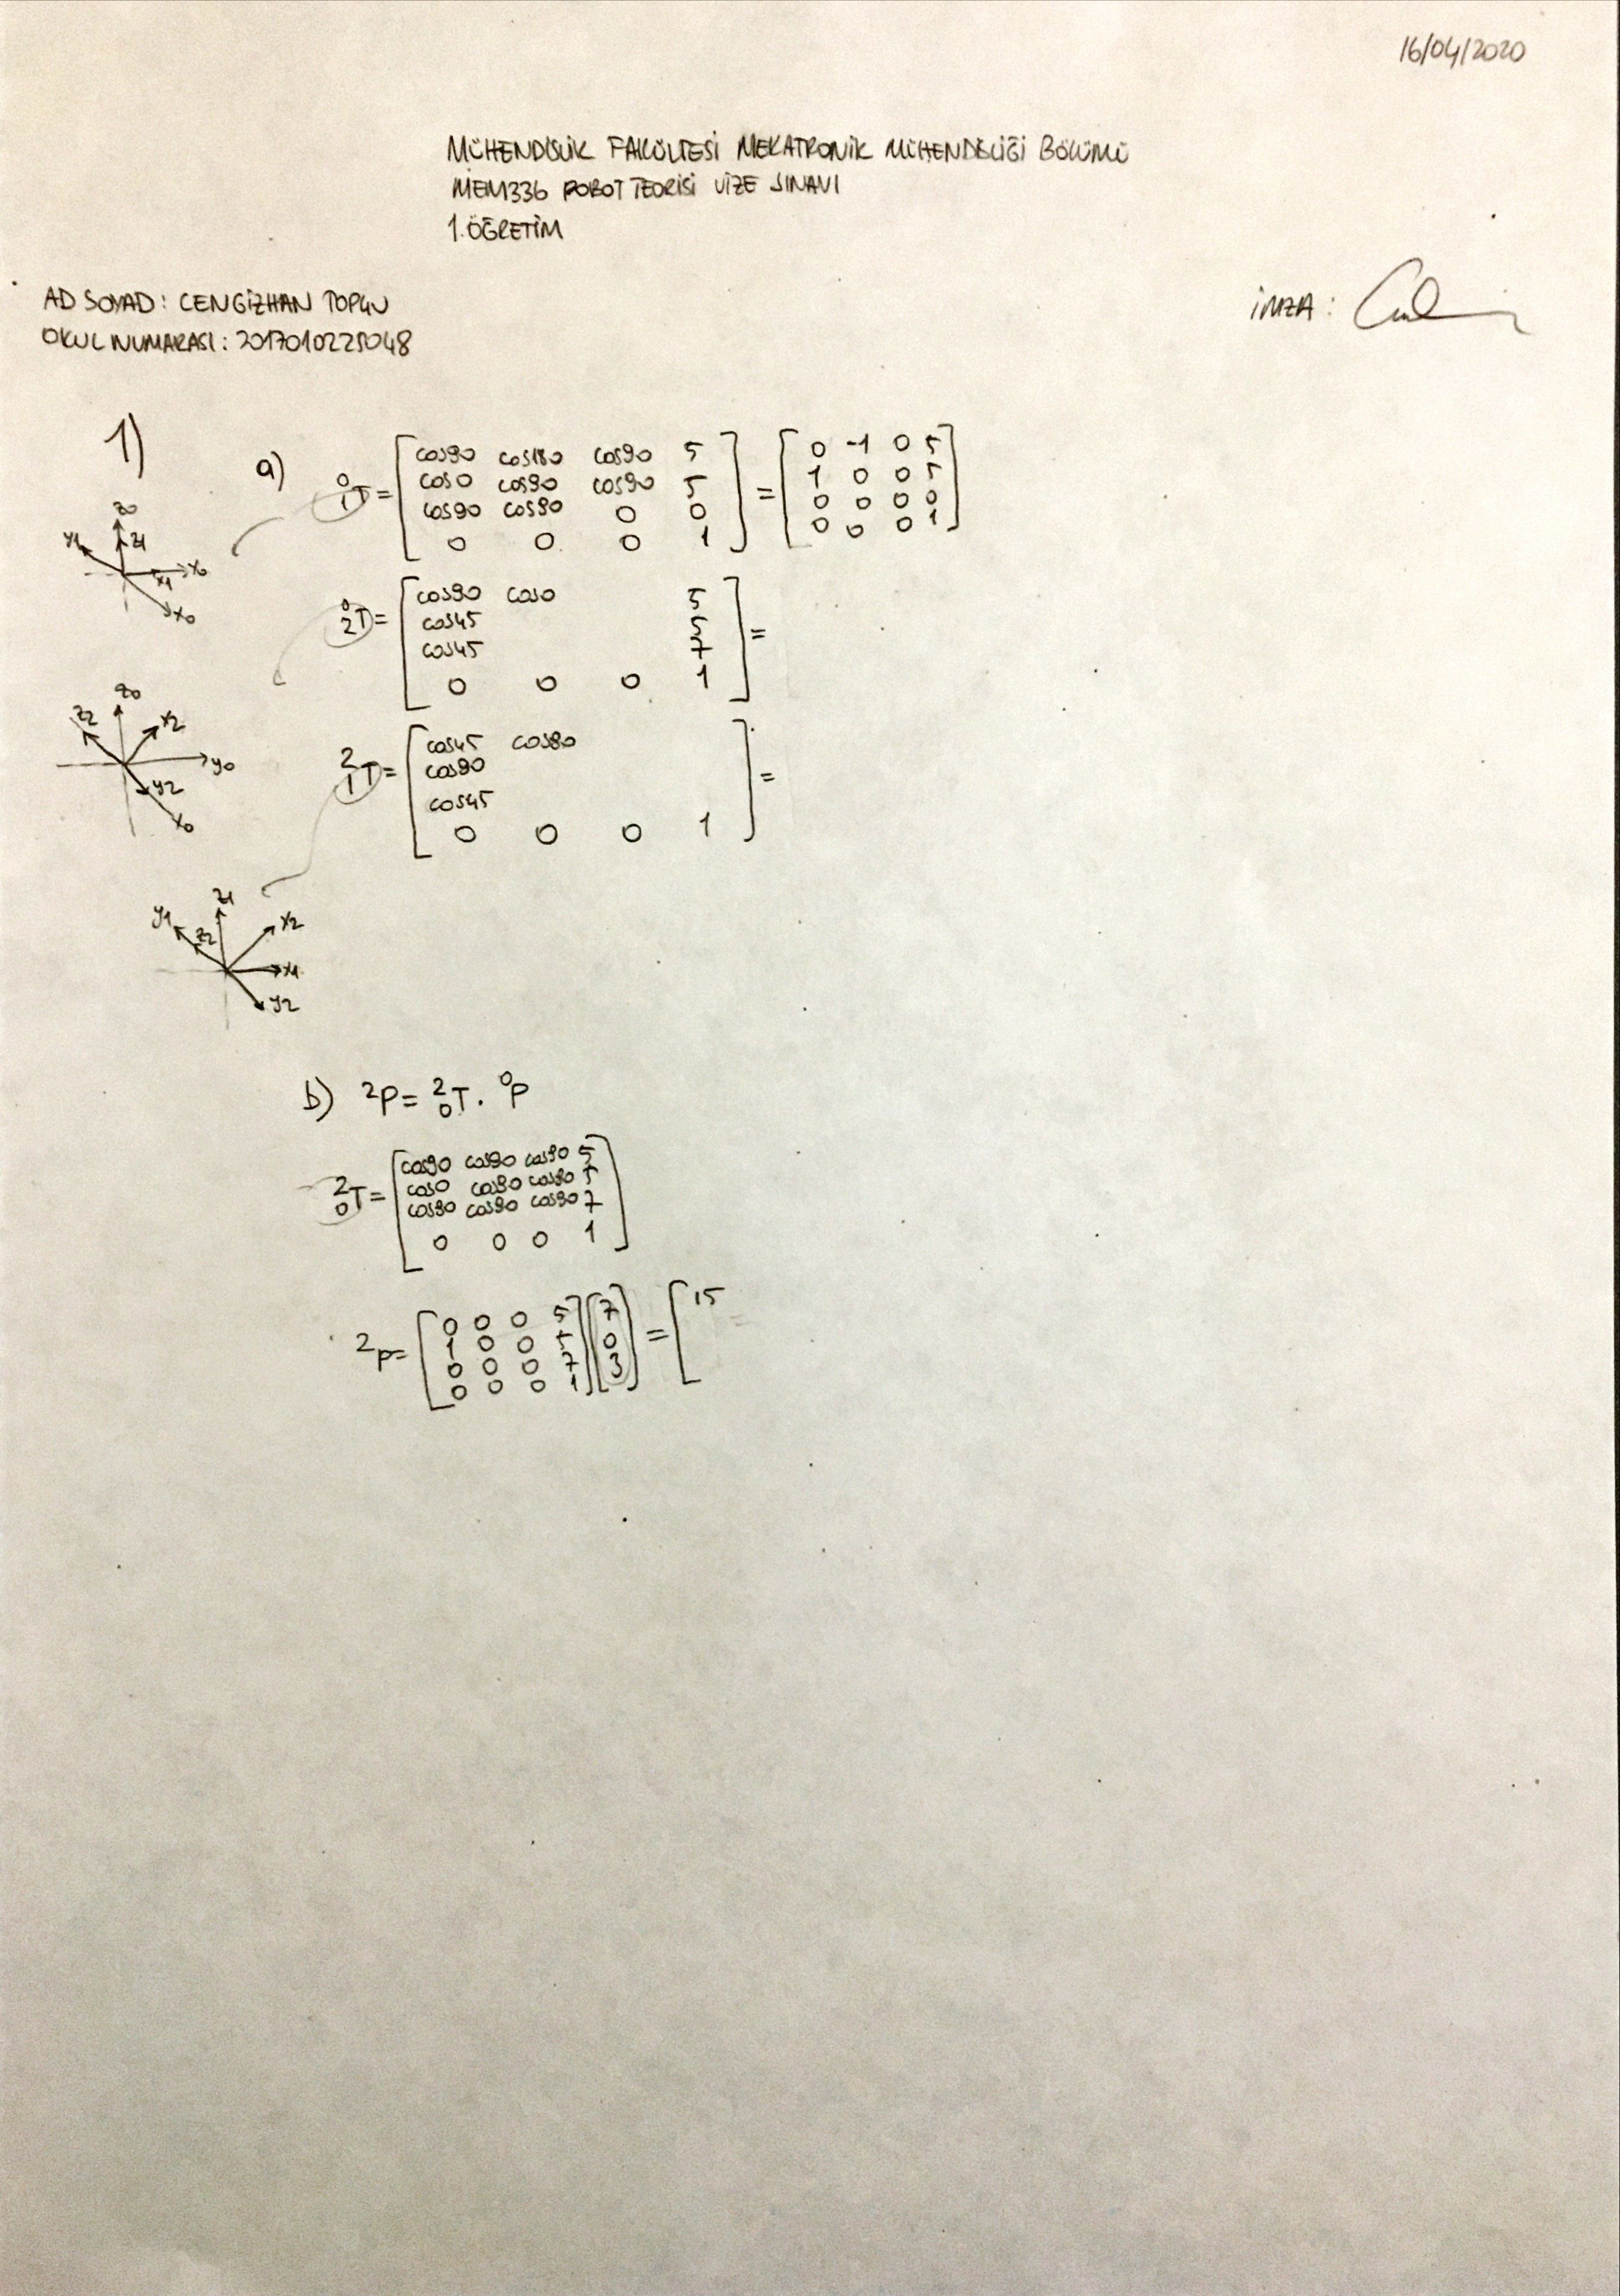 16/04/2020
MÜHENDİSLİK FAKÜLTESİ MEKATRONİK MÜHENDİSLİĞİ BÖLÜMÜ
MEM336 ROBOT TEORİSİ VİZE SINAVI
1.ÖĞRETİM
AD SOYAD: CENGİZHAN
İMZA:
OKUL NUMARASI: 2017010225048
1)
a) 0 1 T = [ cos90 cos180 cos90 5 ] = [ 0 -1 0 5 ]
cos0 cos90 cos90 5 1 0 0 5
cos90 cos90 0 0 0 0 0 0
0 0 0 1 0 0 0 1
z0
y1 z1 x0
x1
x0
0 2 T = [ cos90 cos0 5 ] =
cos45 5
cos45 7
0 0 0 1
z0
z2 x2
y0
y2
x0
2 1 T = [ cos45 cos90 ] =
cos90
cos45
0 0 0 1
z1
y1 x2
z2
x1
y2
b) 2P = 2 0 T . 0P
2 0 T = [ cos90 cos90 cos90 5 ]
cos0 cos90 cos90 5
cos90 cos90 cos90 7
0 0 0 1
2P = [ 0 0 0 5 ] [ 7 ] = [ 15
1 0 0 5 0
0 0 0 7 3
0 0 0 1